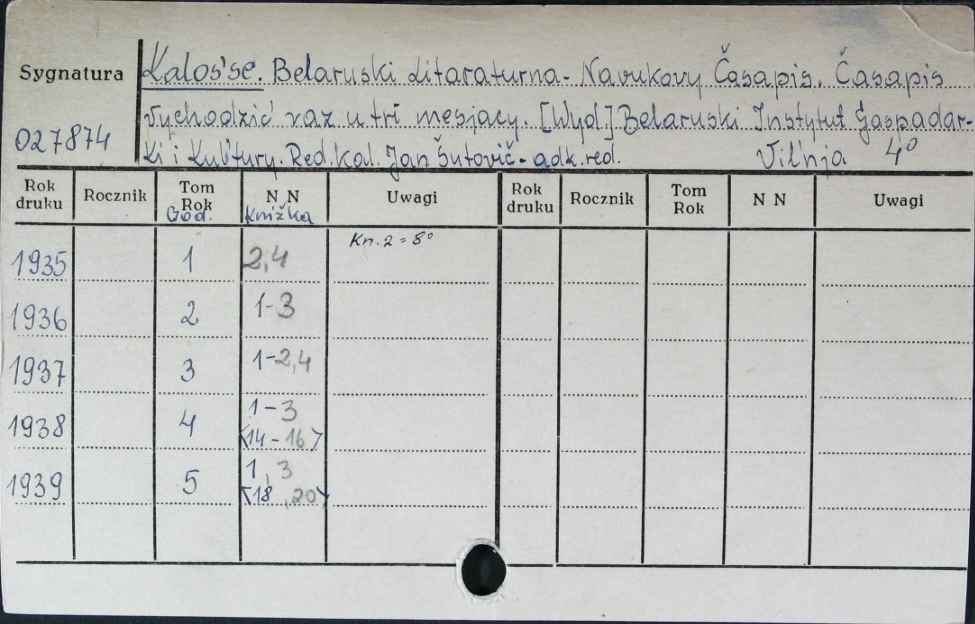 Sygnatura
027874
Kalos'se. Belaruski Litaraturna-Navukovy Časapis. Časapis
vychodzić raz u tri mesjacy. [Wyd] Belaruski Instytut Gaspadar-
ki i Kul'tury. Red. Kal. Jan Šutovič - adk. red. Vil'nja 4°
Rok druku Rocznik Tom Rok God. N N Knižka Uwagi Rok druku Rocznik Tom Rok N N Uwagi
1935 1 2,4 Kn. 2 = 8°
1936 2 1-3
1937 3 1-2,4
1938 4 1-3
<14-16>
1939 5 1, 3
<18, 20>